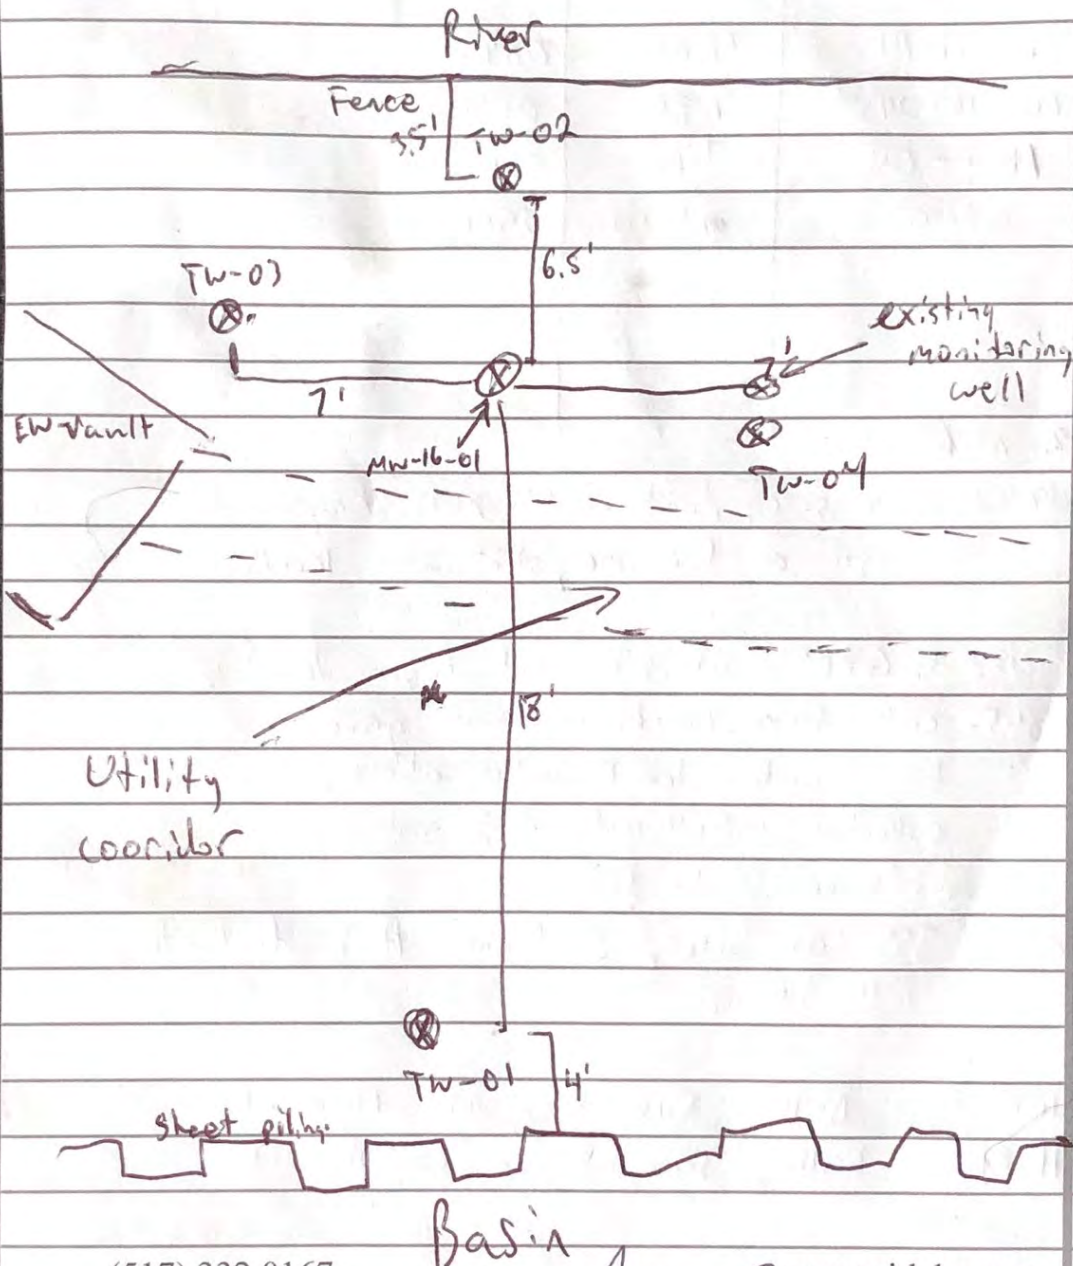 River
Fence
3.5'
TW-02
6.5'
TW-03
existing
monitoring
well
7'
7'
EW-Vault
MW-16-01
TW-04
18'
Utility
cooridor
TW-01
4'
Sheet piling
Basin